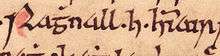 Ragnall .h. hImair